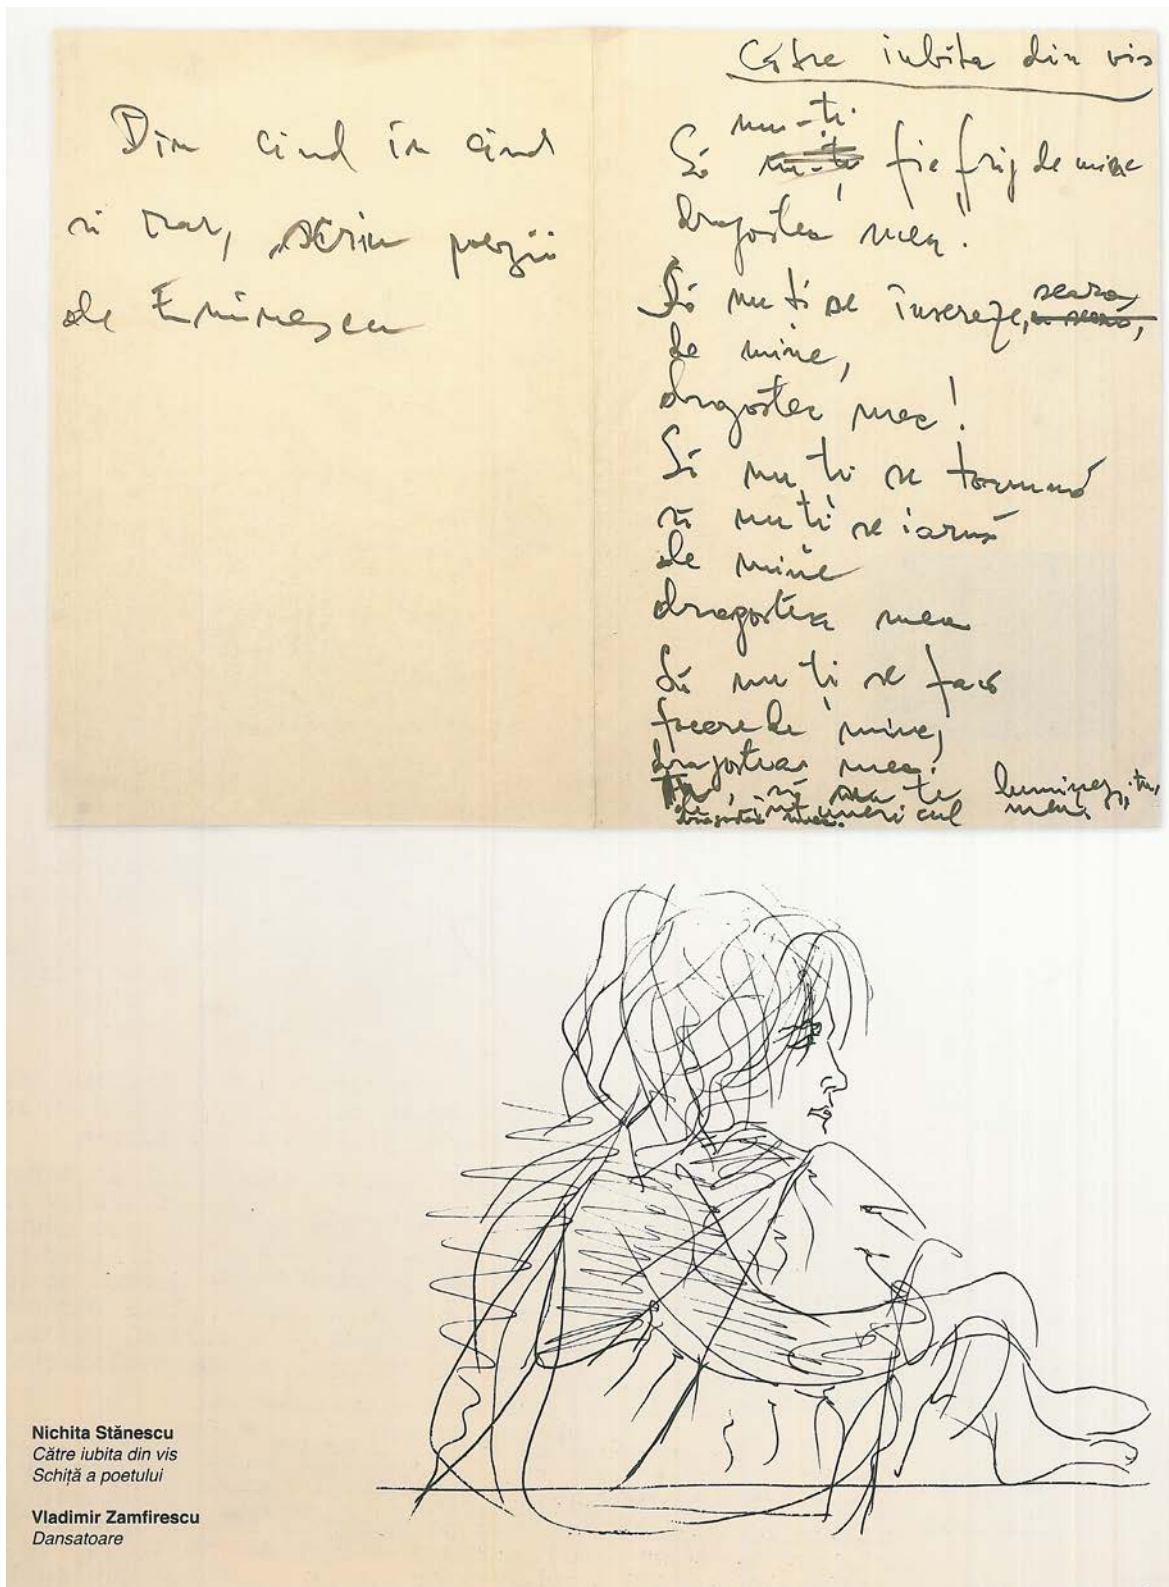 Din cînd în cînd
și rar, scriu poezii
de Eminescu
Către iubita din vis
nu-ți
Să nu-ți fie frig de mine
dragostea mea!
Să nu ți se însereze, seara,
de mine,
dragostea mea!
Să nu ți se toamnă
să nu ți se iarnă
de mine
dragostea mea
Să nu ți se facă
foere de mine,
dragostea mea!
să te luminez, tu,
de întunericul meu,
dragostea mea.
Nichita Stănescu
Către iubita din vis
Schiță a poetului
Vladimir Zamfirescu
Dansatoare